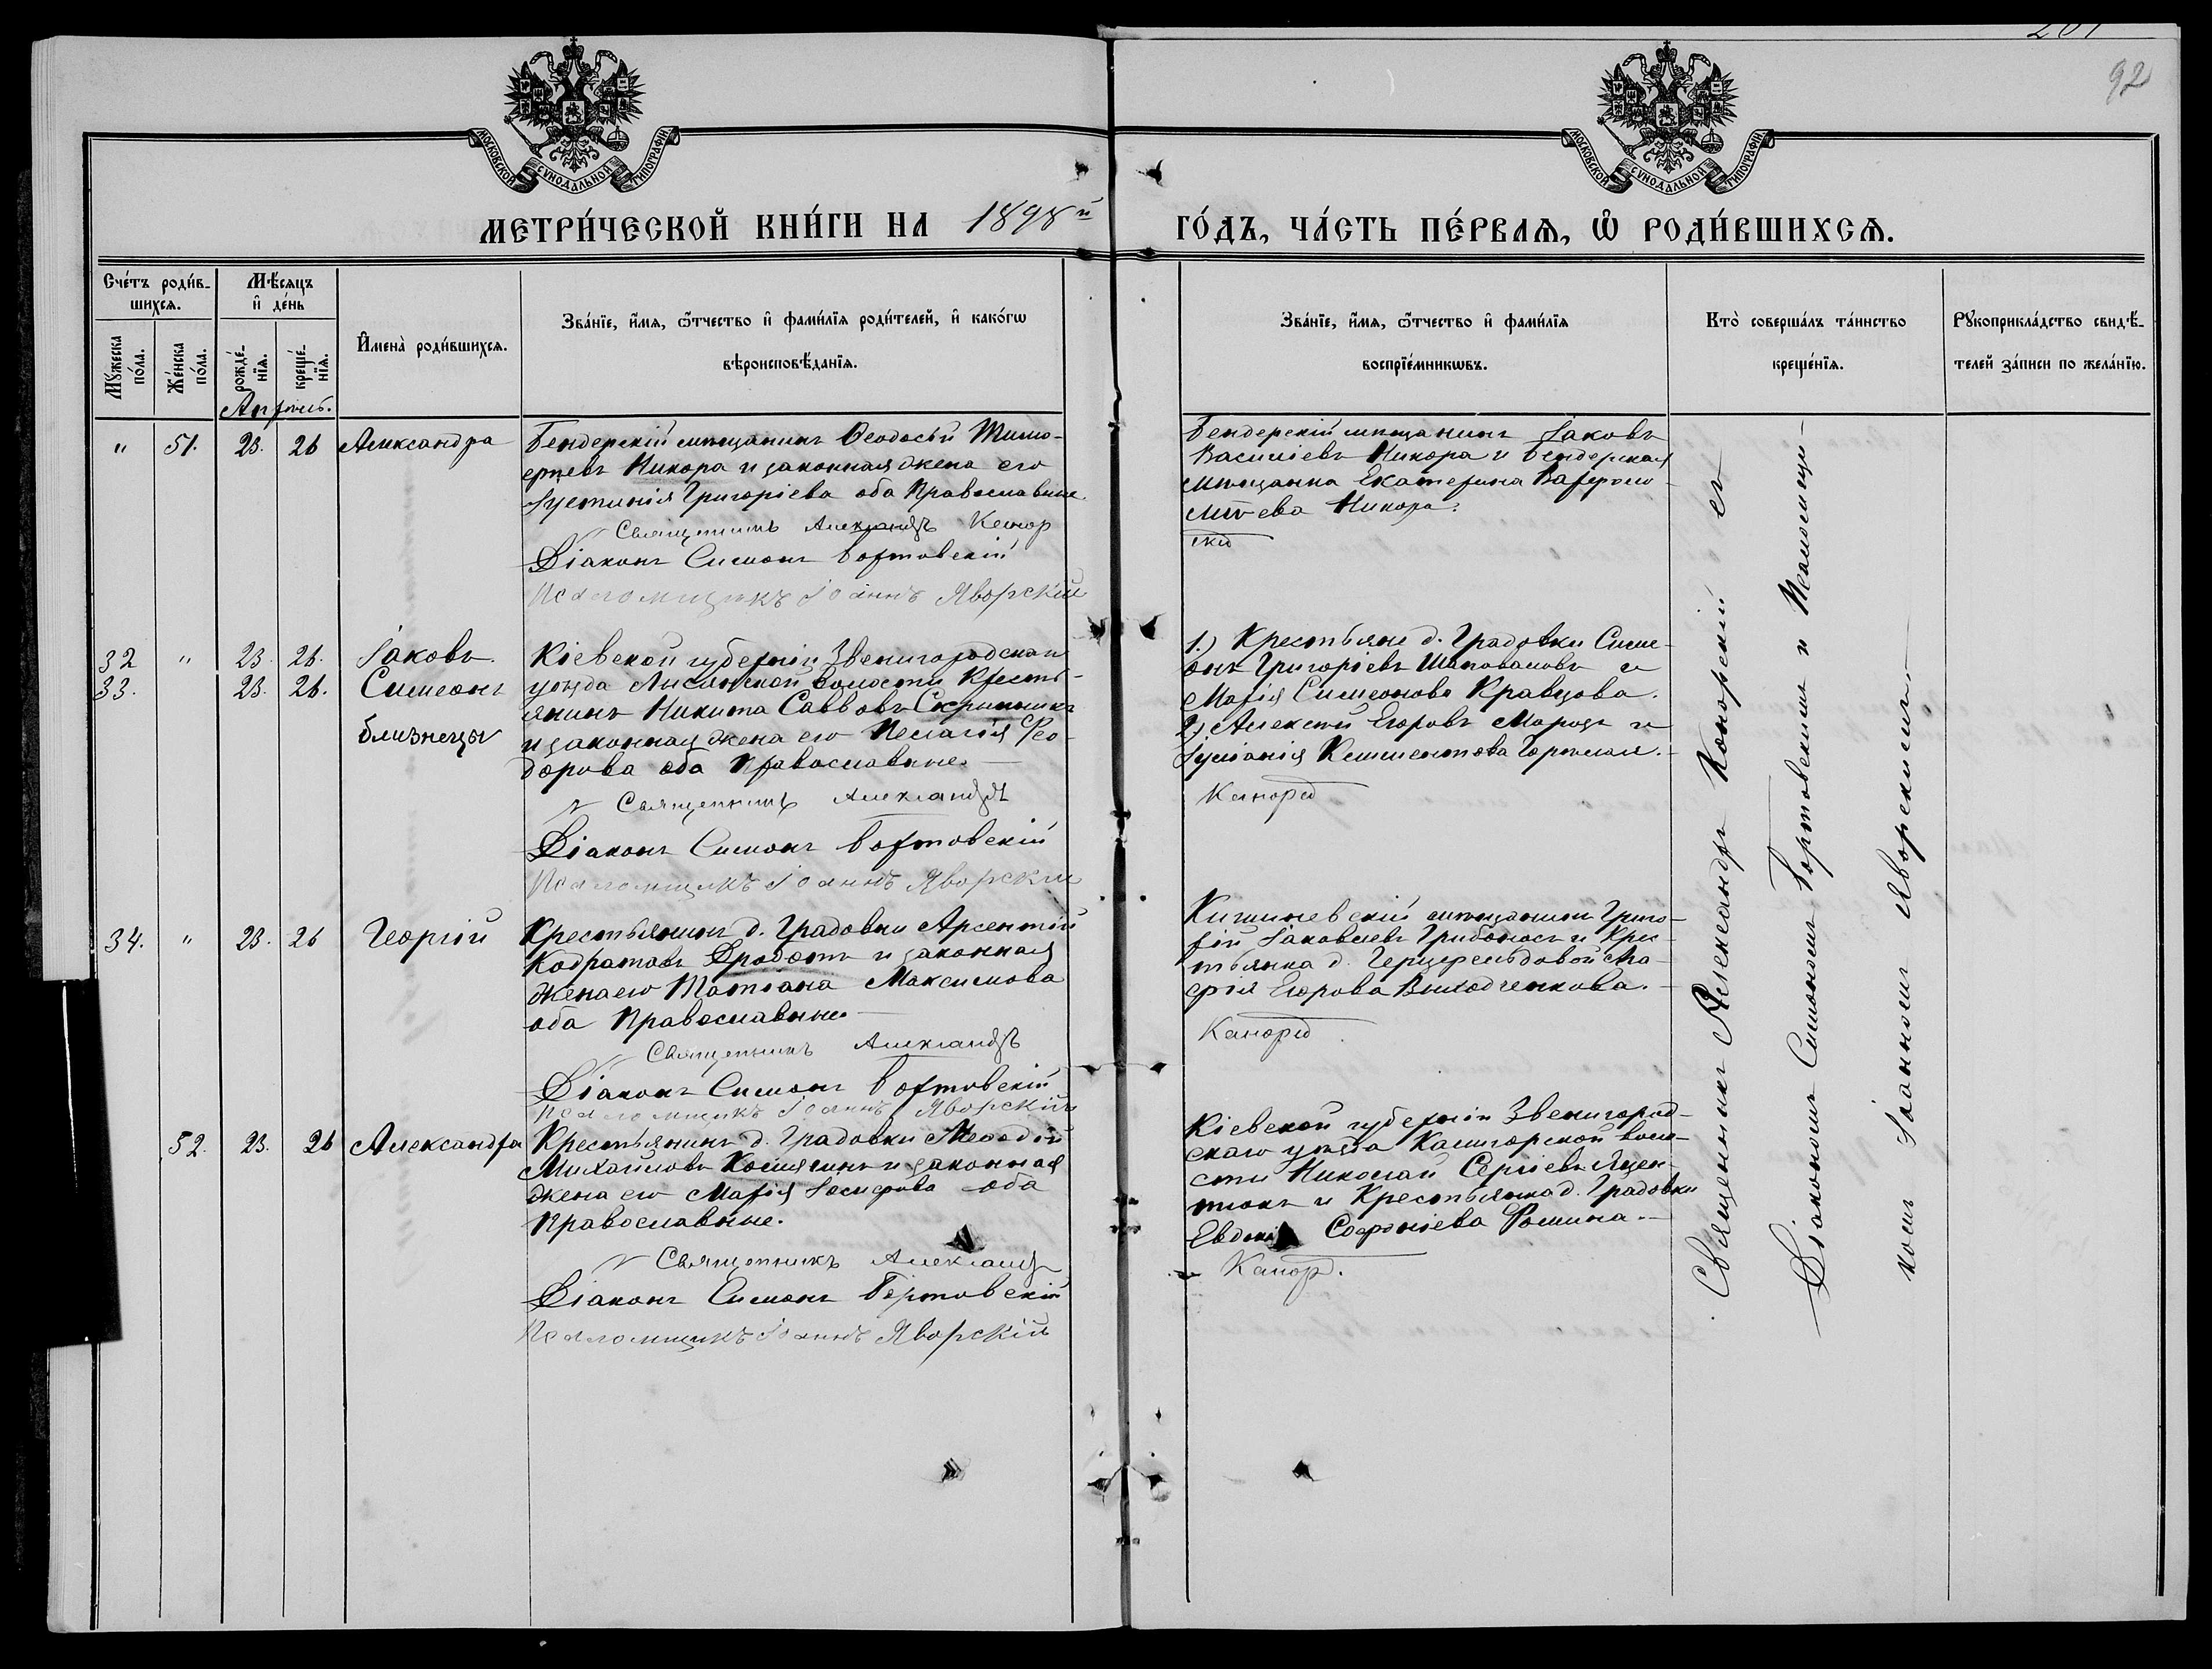 201
92
МОСКОВСКОЙ СѴНОДАЛЬНОЙ ТИПОГРАФІИ
МОСКОВСКОЙ СѴНОДАЛЬНОЙ ТИПОГРАФІИ
МЕТРИ́ЧЕСКОЙ КНИ́ГИ НА 1898й ГО́ДЪ, ЧА́СТЬ ПЕ́РВАѦ, Ѡ҆ РОДИ́ВШИХСѦ.
Сче́тъ роди́в-
шихсѧ.
Мѣ́сѧцъ
и҆ де́нь
Мꙋ́жеска по́ла.
Же́нска по́ла.
рожде́-
нїѧ.
креще́-
нїѧ.
Апрѣль.
И҆мена̀ роди́вшихсѧ.
Зва́нїе, и҆́мѧ, ѻ҆́тчество и҆ фами́лїѧ роди́телей, и҆ како́гѡ
вѣроисповѣ́данїѧ.
Зва́нїе, и҆́мѧ, ѻ҆́тчество и҆ фами́лїѧ
воспрїе́мникѡвъ.
Кто̀ соверша́лъ та́инство
креще́нїѧ.
Рꙋкоприкла́дство свидѣ́-
телей за́писи по жела́нїю.
" 51. 23. 26 Александра
Бендерскій мѣщанинъ Ѳеодосій Тимо-
ѳеевъ Никора и законная жена его
Іустинія Григоріева оба Православные
Священникъ Александръ Конор
Діаконъ Симонъ Бортовскій
Псаломщикъ Іоаннъ Яворскій
Бендерскій мѣщанинъ Іаковъ
Василіевъ Никора и бендерская
мѣщанка Екатерина Варфоло-
меева Никора.
скій
32 " 23. 26. Іаковъ
33. 23. 26. Симеонъ
близнецы
Кіевской губерніи Звенигородскаго
уѣзда Лисянской волости Кресть-
янинъ Никита Саввовъ Скрипникъ
и законная жена его Пелагія Ѳео-
дорова оба Православные.
Священникъ Александръ
Діаконъ Симонъ Бортовскій
Псаломщикъ Іоаннъ Яворскій
1.) Крестьяне д. Градовки Симе-
онъ Григоріевъ Шаповаловъ и
Марія Симеонова Кравцова.
2) Алексей Егоровъ Морозъ и
Іуліанія Климентова
Конорскій
34. " 23. 26 Георгій
Крестьянинъ д. Градовки Арсентій
Кодратовъ Дроботъ и законная
жена его Татіана Максимова
оба Православные
Священникъ Александръ
Діаконъ Симонъ Бортовскій
Псаломщикъ Іоаннъ Яворскій
Кишиневскій мѣщанинъ Григо-
рій Іаковлевъ Грибоносъ и Крес-
тьянка д. Герцфельдовой Ма-
рія Егорова Выходченкова.
Конорскій
52. 23. 26 Александра
Крестьянинъ д. Градовки Меѳодій
Михайловъ и законная
жена его Марія Іосифова оба
Православные.
Священникъ Александръ
Діаконъ Симонъ Бортовскій
Псаломщикъ Іоаннъ Яворскій
Кіевской губерніи Звенигород-
скаго уѣзда воло-
сти Николай Сергіевъ Яцен-
тюкъ и Крестьянка д. Градовки
Евдокія Софроніева Фомина.
Конор.
Священникъ Александръ Конорскій съ
Діакономъ Симономъ Бортовскимъ и Псаломщи-
комъ Іоанномъ Яворскимъ.